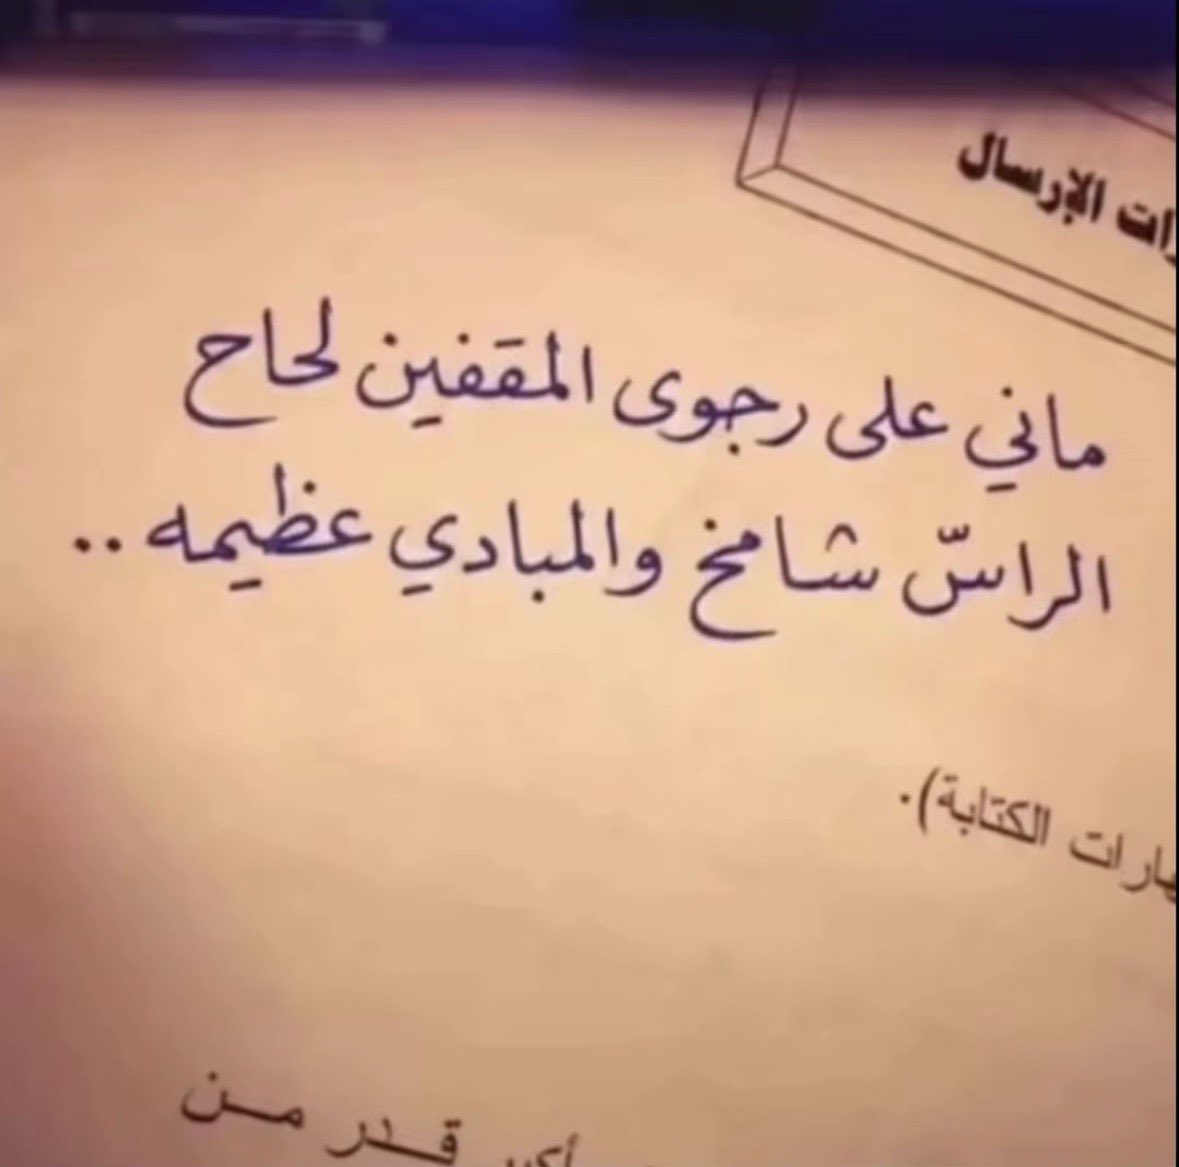 الإرسال
ماني على رجوى المقفين لحاح
الراسّ شامخ والمبادي عظيمه ..
الكتابة).
قدر من